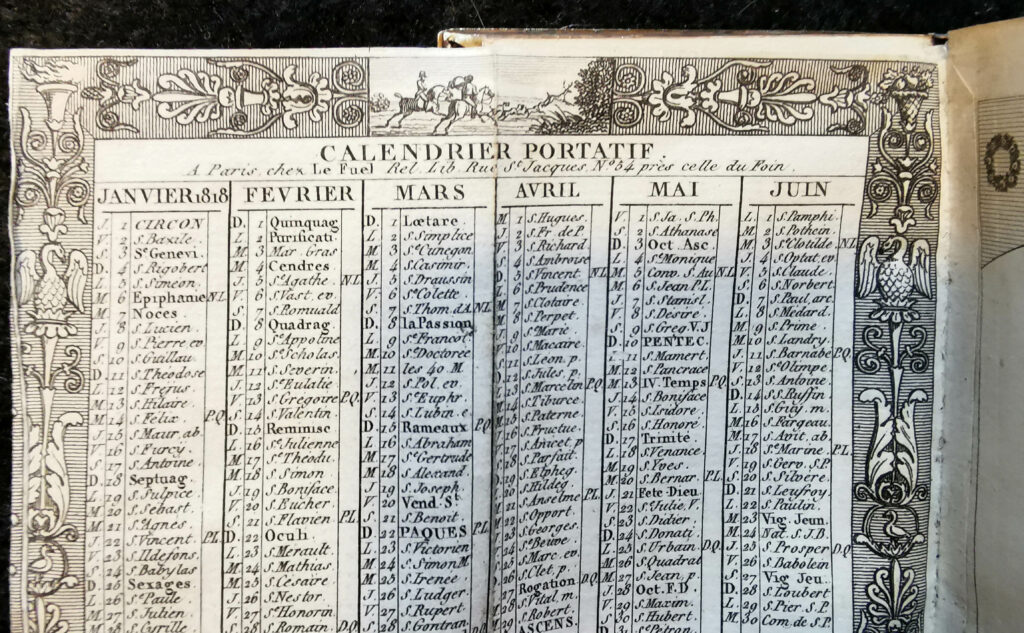 CALENDRIER PORTATIF.
A Paris, chez Le Fuel Rel. Lib. Rue St. Jacques, No. 54 près celle du Foin.
JANVIER 1818
J. 1 CIRCON
V. 2 S. Bazile.
S. 3 Ste Genevi.
D. 4 S. Rigobert
L. 5 S. Simeon.
M. 6 Epiphanie N.L.
M. 7 Noces.
J. 8 S. Lucien.
V. 9 S. Pierre ev.
S. 10 S. Guillau.
D. 11 S. Theodose
L. 12 S. Frejus.
M. 13 S. Hilaire.
M. 14 S. Félix. P.Q.
J. 15 S. Maur, ab.
V. 16 S. Furcy.
S. 17 S. Antoine.
D. 18 Septuag.
L. 19 S. Sulpice.
M. 20 S. Sebast.
M. 21 Ste Agnès.
J. 22 S. Vincent. P.L.
V. 23 S. Ildefons.
S. 24 S. Babylas
D. 25 Sexages.
L. 26 Ste Paule.
M. 27 S. Julien.
28 S. Cyrille
FEVRIER
D. 1 Quinquag
L. 2 Purificati.
M. 3 Mar. Gras
M. 4 Cendres
J. 5 Ste Agathe. N.L.
V. 6 S. Vast, ev.
S. 7 S. Romuald
D. 8 Quadrag.
L. 9 Ste Appoline
M. 10 Ste Scholas.
M. 11 S. Severin.
J. 12 Ste Eulalie
V. 13 S. Gregoire P.Q.
S. 14 S. Valentin.
D. 15 Reminisc
L. 16 Ste Julienne
M. 17 S. Theodu.
M. 18 S. Simon
J. 19 S. Boniface.
V. 20 S. Eucher
S. 21 S. Flavien P.L.
D. 22 Oculi.
L. 23 S. Merault.
M. 24 S. Mathias
M. 25 S. Cesaire
J. 26 S. Nestor.
V. 27 Ste Honorin
S. 28 S. Romain. D.Q.
MARS
D. 1 Lœtare.
L. 2 S. Simplice
M. 3 Ste Cunegon
M. 4 S. Casimir.
J. 5 S. Draussin
V. 6 Ste Colette.
S. 7 S. Thom. d'A. N.L.
D. 8 la Passion
L. 9 Ste Francoi.
M. 10 S. Doctorée
M. 11 les 40 M.
J. 12 S. Pol. ev.
V. 13 Ste Euphr
S. 14 S. Lubin. e.
D. 15 Rameaux P.Q.
L. 16 S. Abraham
M. 17 Ste Gertrude
M. 18 S. Alexand.
J. 19 S. Joseph.
V. 20 Vend. St.
S. 21 S. Benoit.
D. 22 PAQUES P.L.
L. 23 S. Victorien
M. 24 S. Simon M.
M. 25 S. Irenée.
J. 26 S. Ludger.
V. 27 S. Rupert
S. 28 S. Gontran D.Q.
AVRIL
M. 1 S. Hugues.
J. 2 S. Fr. de P.
V. 3 S. Richard
S. 4 S. Ambroise
D. 5 S. Vincent N.L.
L. 6 S. Prudence
M. 7 S. Clotaire.
M. 8 S. Perpet.
J. 9 Ste Marie.
V. 10 S. Macaire.
S. 11 S. Leon, p.
D. 12 S. Jules, p.
L. 13 S. Marcelin P.Q.
M. 14 S. Tiburce.
M. 15 S. Paterne.
J. 16 S. Fructue.
V. 17 S. Anicet, p
S. 18 S. Parfait.
19 S. Elpheg.
20 S. Hildeg.
21 S. Anselme P.L.
22 S. Opport.
23 S. Georges.
24 Ste Beuve.
25 S. Marc. ev.
26 S. Clet, p.
27 Rogation D.Q.
28 S. Vital, m.
S. Robert.
ASCENS.
MAI
V. 1 S. Ja. S. Ph.
S. 2 S. Athanase
D. 3 Oct. Asc.
L. 4 Ste Monique
M. 5 Conv. S. Au N.L.
M. 6 S. Jean P.L.
J. 7 S. Stanisl.
V. 8 S. Desiré.
S. 9 S. Greg. V.J
D. 10 PENTEC.
L. 11 S. Mamert.
M. 12 S. Pancrace
M. 13 IV. Temps P.Q.
J. 14 S. Boniface
V. 15 S. Isidore.
S. 16 S. Honoré.
D. 17 Trinité.
L. 18 S. Venance.
M. 19 S. Yves.
M. 20 S. Bernar. P.L.
J. 21 Fete-Dieu
V. 22 Ste Julie. V.
S. 23 S. Didier.
D. 24 S. Donati.
L. 25 S. Urbain D.Q.
M. 26 S. Quadrat
M. 27 S. Jean, p.
J. 28 Oct. F.D.
V. 29 S. Maxim
S. 30 S. Hubert
D. 31 Ste Petron.
JUIN
L. 1 S. Pamphi.
M. 2 S. Pothein.
M. 3 Ste Clotilde. N.L.
J. 4 S. Optat, ev.
V. 5 S. Claude.
S. 6 S. Norbert
D. 7 S. Paul, arc.
L. 8 S. Medard.
M. 9 S. Prime.
M. 10 S. Landry.
J. 11 S. Barnabe P.Q.
V. 12 Ste Olimpe.
S. 13 S. Antoine.
D. 14 S. Ruffin
L. 15 S. Guy, m.
M. 16 S. Fargeau
M. 17 S. Avit, ab.
J. 18 Ste Marine. P.L.
V. 19 S. Gerv. S.P
S. 20 S. Silvere.
D. 21 S. Leufroy
L. 22 S. Paulin.
M. 23 Vig. Jeun.
M. 24 Nat. S.J.B.
J. 25 S. Prosper D.Q.
V. 26 S. Babolein
S. 27 Vig Jeu.
D. 28 S. Loubert
L. 29 S. Pier. S.P.
M. 30 Com. de S.P.